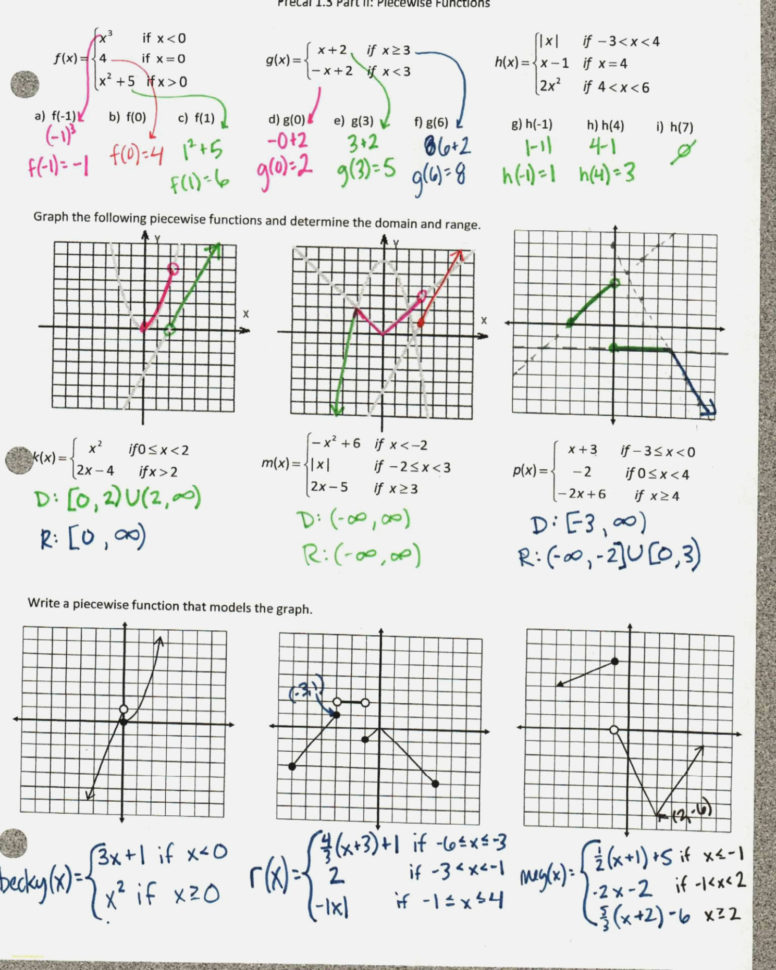 Precal 1.3 Part II: Piecewise Functions
f(x)= { x³ if x<0
4 if x=0
x²+5 if x>0
g(x)= { x+2, if x≥3
−x+2 if x<3
h(x)= { |x| if −3<x<4
x−1 if x=4
2x² if 4<x<6
a) f(-1) b) f(0) c) f(1) d) g(0) e) g(3) f) g(6) g) h(-1) h) h(4) i) h(7)
(-1)³ 1²+5 -0+2 3+2 6+2 |-1| 4-1 ∅
f(-1)=-1 f(0)=4 f(1)=6 g(0)=2 g(3)=5 g(6)=8 h(-1)=1 h(4)=3
Graph the following piecewise functions and determine the domain and range.
Y
X
Y
X
k(x)= { x² if 0≤x<2
2x−4 if x>2
D: [0,2)U(2,∞)
R: [0,∞)
m(x)= { −x²+6 if x<−2
|x| if −2≤x<3
2x−5 if x≥3
D: (-∞,∞)
R: (-∞,∞)
p(x)= { x+3 if −3≤x<0
−2 if 0≤x<4
−2x+6 if x≥4
D: [-3,∞)
R: (-∞,-2]U[0,3)
Write a piecewise function that models the graph.
(-3,1)
(2,-6)
becky(x)= { 3x+1 if x<0
x² if x≥0
r(x)= { 4/3(x+3)+1 if -6≤x≤-3
2 if -3<x<-1
-|x| if -1≤x≤4
meg(x)= { 1/2(x+1)+5 if x≤-1
-2x-2 if -1<x<2
5/3(x+2)-6 x≥2